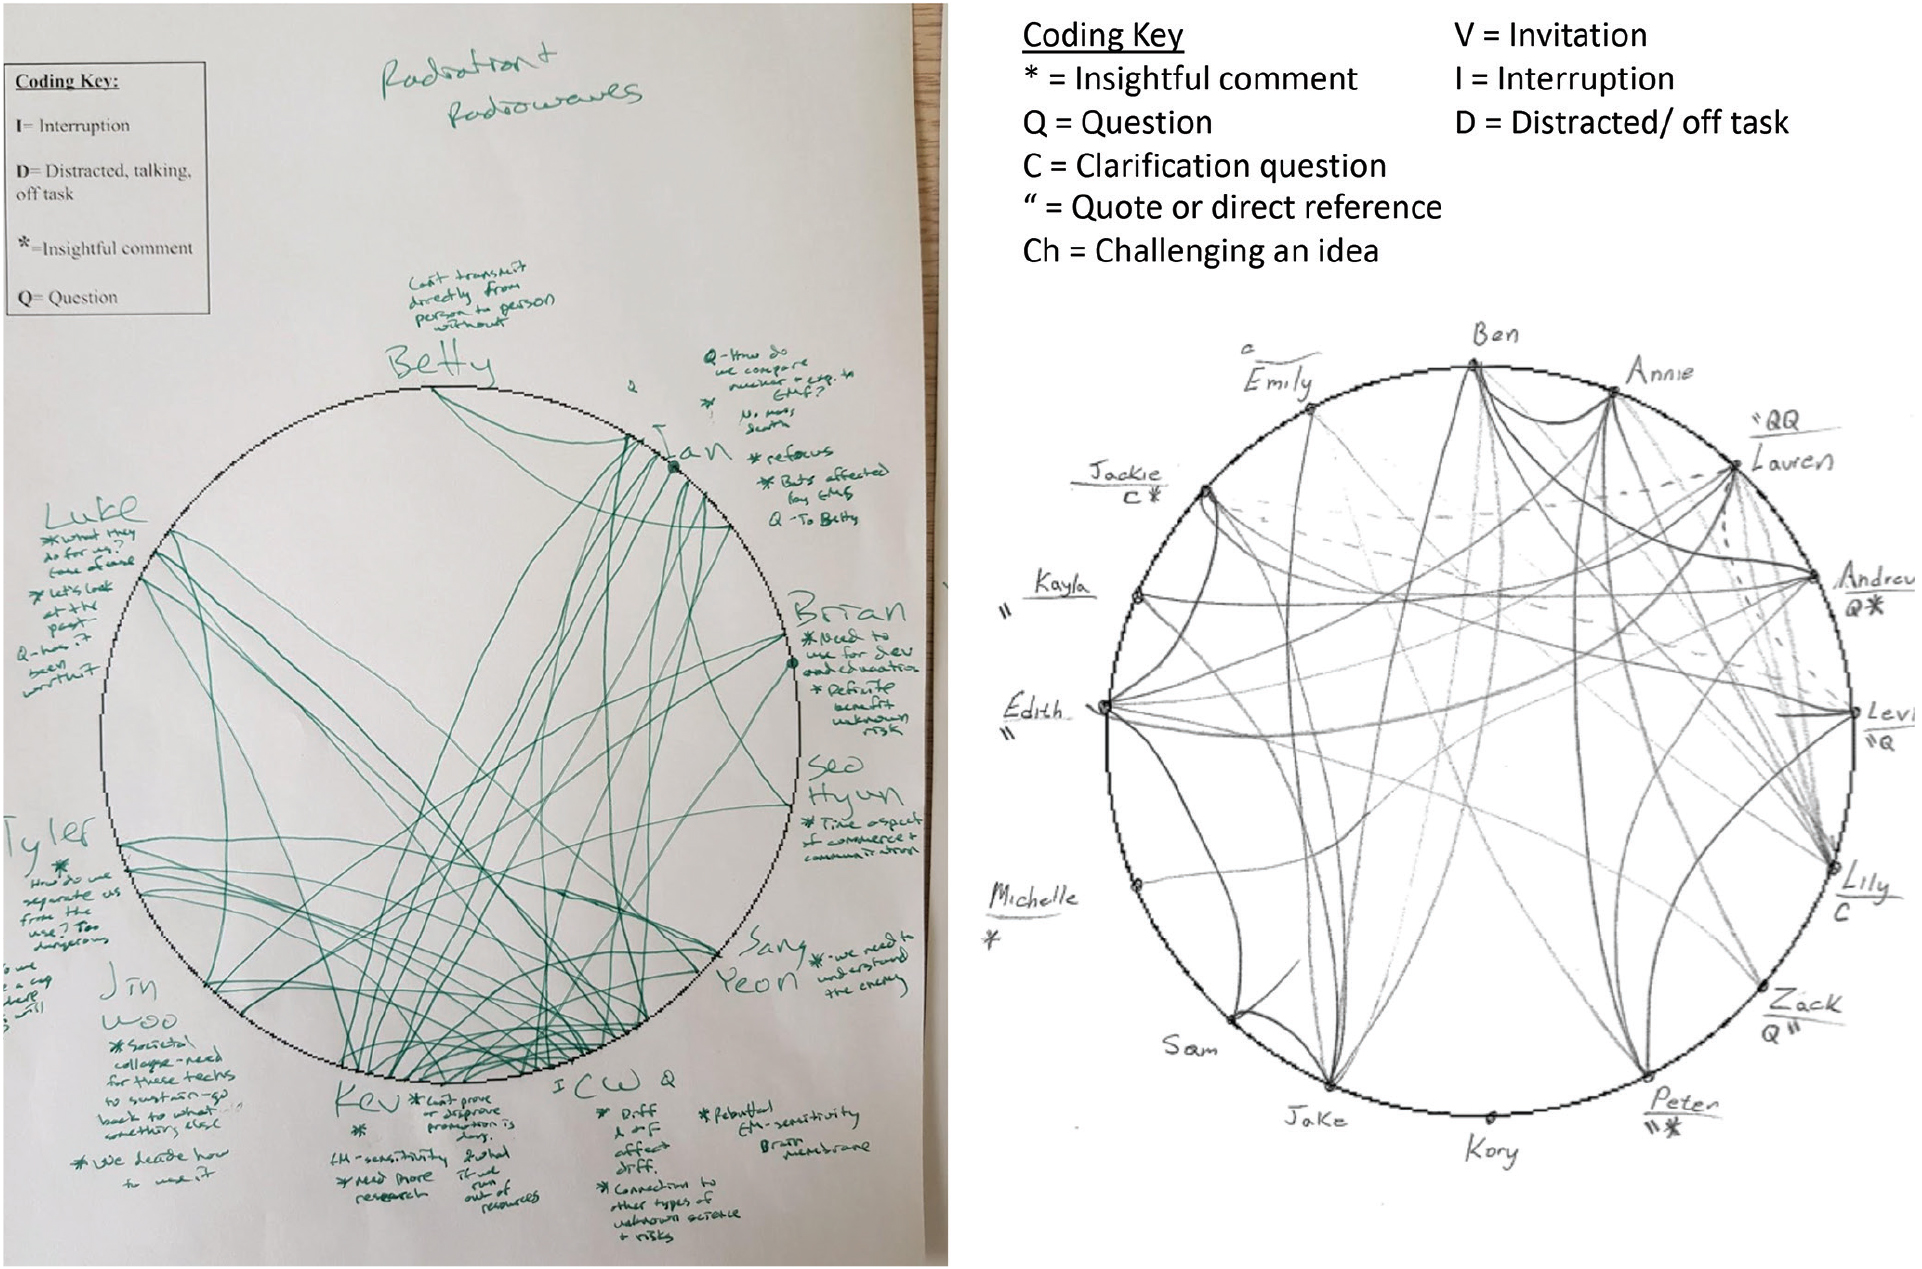 Coding Key:
I= Interruption
D= Distracted, talking,
off task
*=Insightful comment
Q= Question
Radiation +
Radiowaves
Can't transmit
directly from
person to person
without
Betty
Q
Q-How do
we compare
nuclear + exp. to
EMF?
*
No mass
death
I
Ian
* refocus
* Bats affected
by EMFs
Q - To Betty
Luke
* What they
do for us?
Ease of use
* Let's look
at the
past
Q-has it
been
worth it
Brian
* Need to
use for dev
and education
* Definite
benefit
unknown
risk
Seo
Hyun
* Time aspect
of commerce +
communication
Tyler
*
How do we
separate us
from the
use? Too
dangerous
we
a cap
where
will
Jin
Woo
* Societal
collapse-need
for these techs
to sustain-go
back to what
something else
* We decide how
to use it
Sang
Yeon
* -we need to
understand
the enemy
Kev
* Can't prove
or disprove
promotion is
*
EM-sensitivity
* need more
research
* what
if we
run
out of
resources
I CW Q
* Diff
affect
diff.
* Connection to
other types of
unknown science
+ risks
* Rebuttal
EM-sensitivity
Brain
membrane
Coding Key
* = Insightful comment
Q = Question
C = Clarification question
“ = Quote or direct reference
Ch = Challenging an idea
V = Invitation
I = Interruption
D = Distracted/ off task
Ben
Annie
c
Emily
"QQ
Lauren
Jackie
C *
Kayla
"
Andrew
Q*
Edith
"
Levi
"Q
Michelle
*
Lily
C
Zack
Q"
Sam
Jake
Kory
Peter
"*